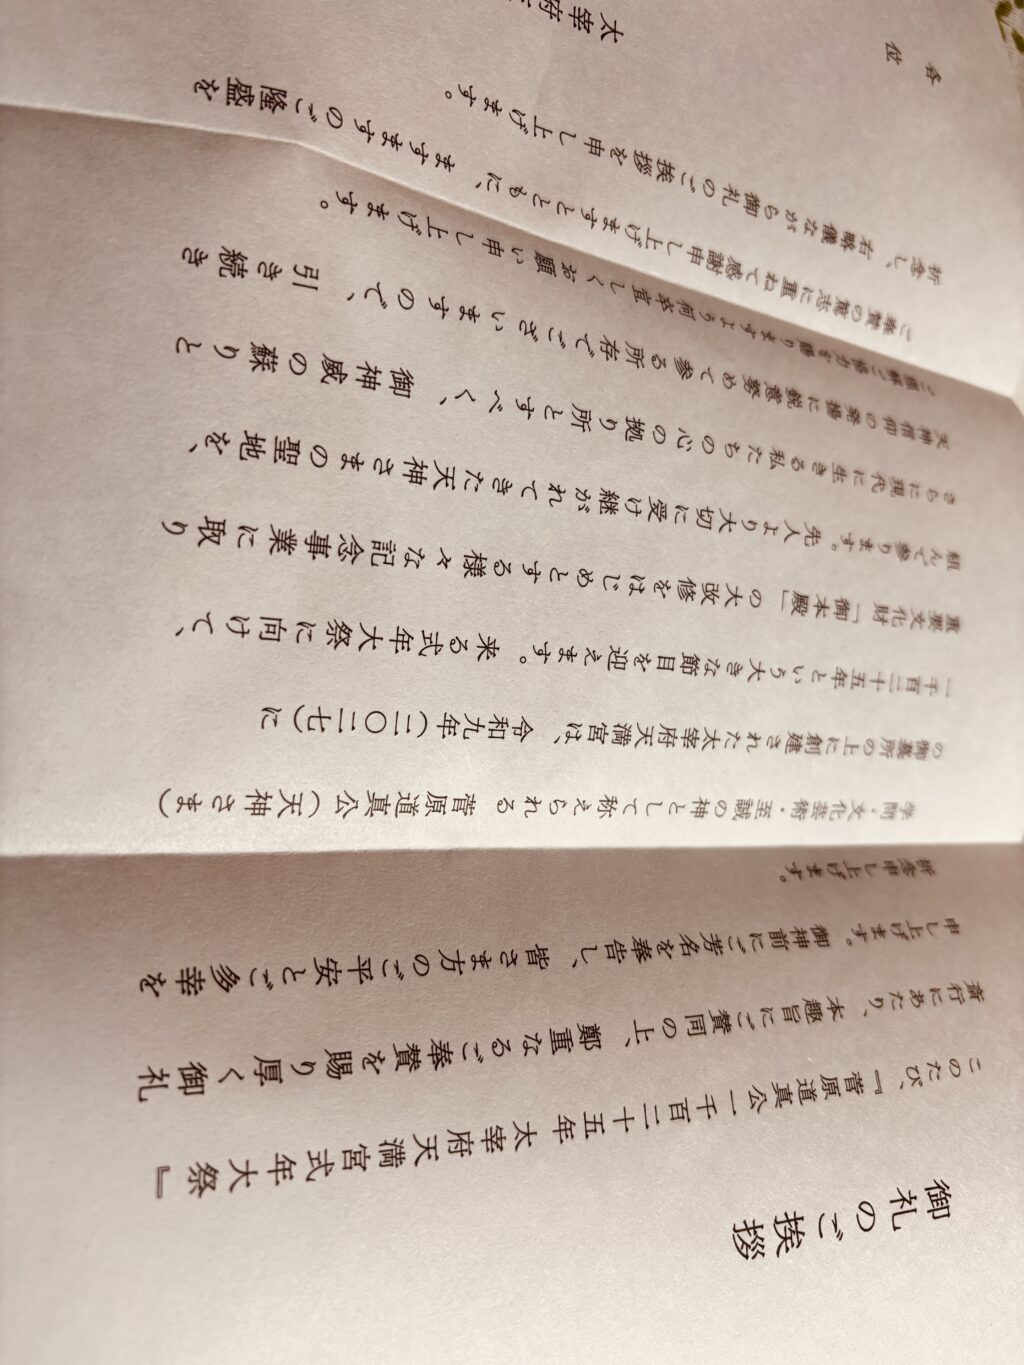 御礼のご挨拶
このたび、『菅原道真公一千百二十五年 太宰府天満宮式年大祭』
斎行にあたり、本趣旨にご賛同の上、鄭重なるご奉賛を賜り厚く御礼
申し上げます。御神前にご芳名を奉告し、皆さま方のご平安とご多幸を
祈念申し上げます。
学問・文化芸術・至誠の神として称えられる菅原道真公(天神さま)
の御墓所の上に創建された太宰府天満宮は、令和九年(二〇二七)に
一千百二十五年という大きな節目を迎えます。来る式年大祭に向けて、
重要文化財「御本殿」の大改修をはじめとする様々な記念事業に取り
組んで参ります。先人より大切に受け継がれてきた天神さまの聖地を、
さらに現代に生きる私たちの心の拠り所とすべく、御神威の蘇りと
天神信仰の発揚に鋭意努めて参る所存でございますので、引き続き
ご理解ご協力を賜りますよう何卒宜しくお願い申し上げます。
ご奉賛の篤志に重ねて感謝申し上げますとともに、ますますのご隆盛を
祈念し、右略儀ながら御礼のご挨拶を申し上げます。
太宰府
各位